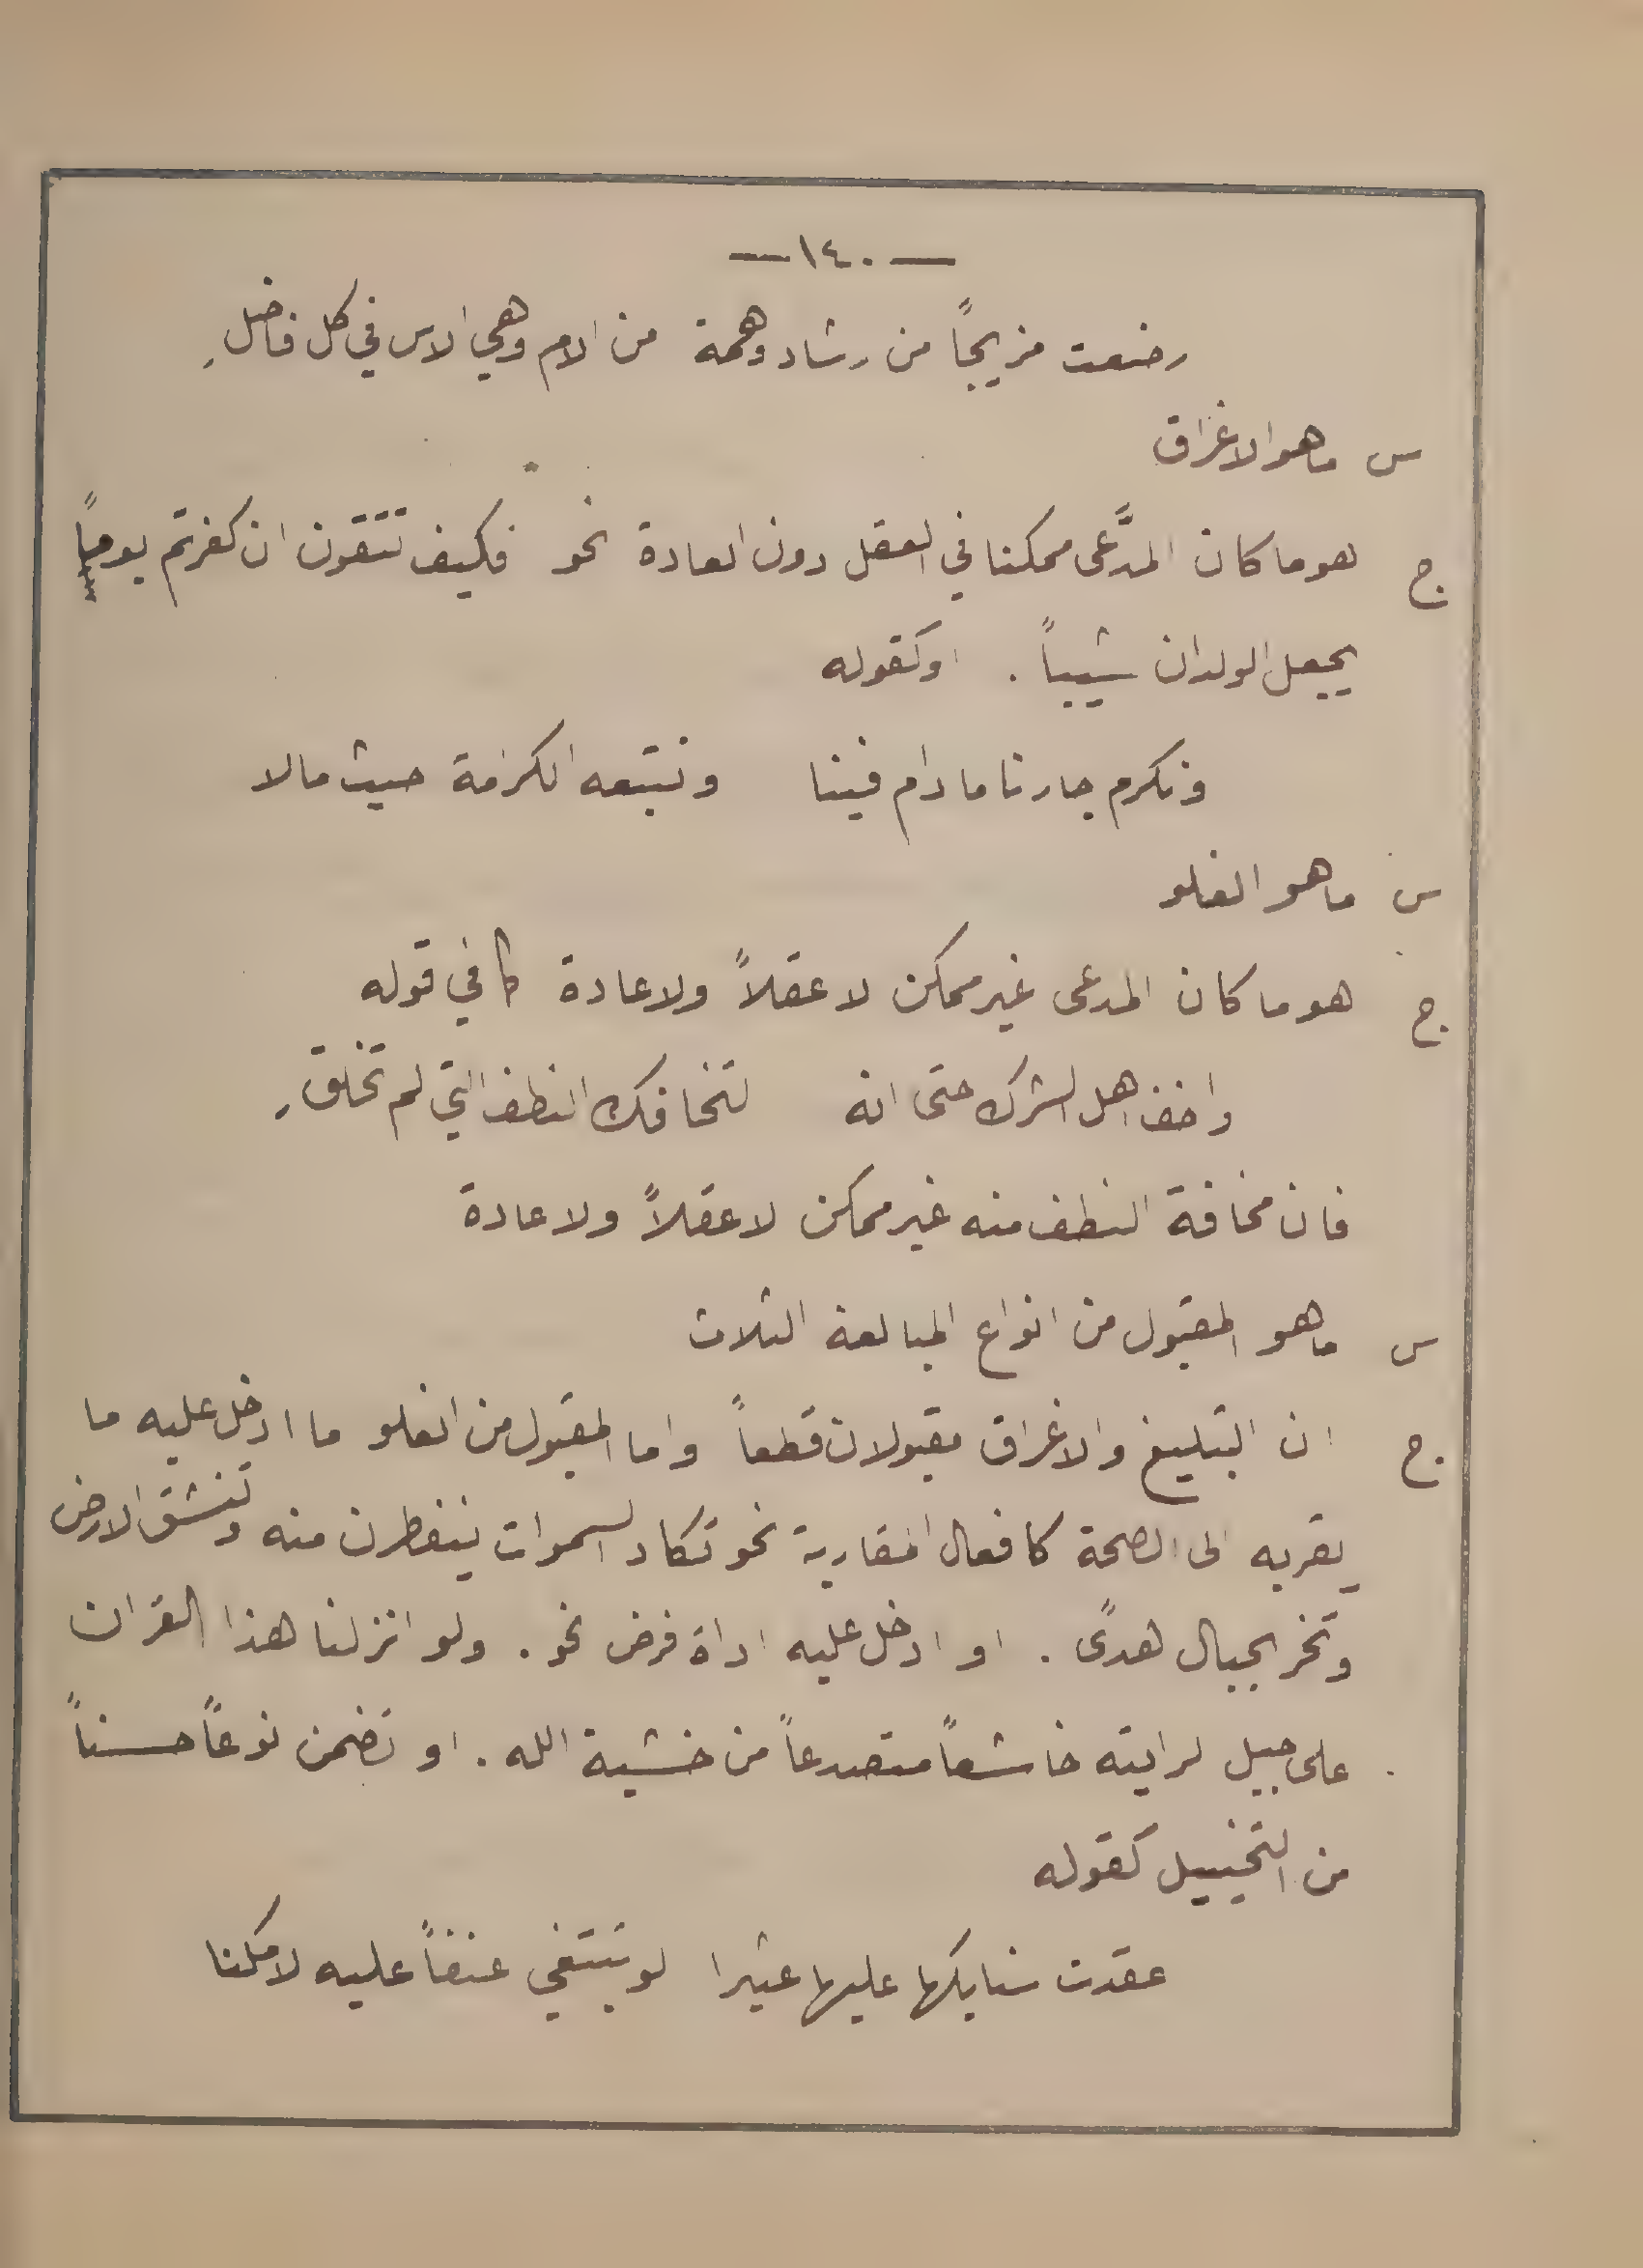 —١٤٠—
رضعت مزيجاً من رشاد وهمة من الام وهي الاس في كل فاضلِ
س ما هو الاغراق
ج هو ما كان المدَّعى ممكنا في العقل دون العادة نحو فكيف تتقون ان كفرتم يوماً
يجعل الولدان شيباً . او كقوله
ونكرم جارنا ما دام فينا ونتبعه الكرامة حيث مالا
س ما هو الغلو
ج هو ما كان المدعى غير ممكن لا عقلاً ولا عادة كما في قوله
واخفت اهل الشرك حتى انه لتخافك النطف التي لم تخلقِ
فان مخافة النطف منه غير ممكن لا عقلاً ولا عادة
س ما هو المقبول من انواع المبالغة الثلاث
ج ان التبليغ والاغراق مقبولان قطعاً واما المقبول من الغلو ما ادخل عليه ما
يقربه الى الصحة كافعال المقاربة نحو تكاد السموات ينفطرن منه وتنشق الارض
وتخر الجبال هدىً . او ادخل عليه اداة فرض نحو . ولو انزلنا هذا القران
على جبل لرايته خاشعاً متصدعاً من خشية الله . او تضمن نوعاً حسناً
من التخييل كقوله
عقدت سنابكها عليها عثيرا لو تبتغي عنقاً عليه لامكنا